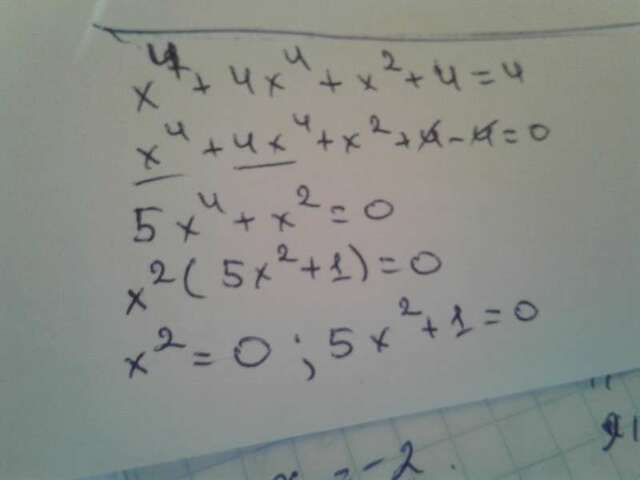 x⁴ + 4x⁴ + x² + 4 = 4
x⁴ + 4x⁴ + x² + 4 - 4 = 0
5x⁴ + x² = 0
x²(5x² + 1) = 0
x² = 0; 5x² + 1 = 0
= -2.